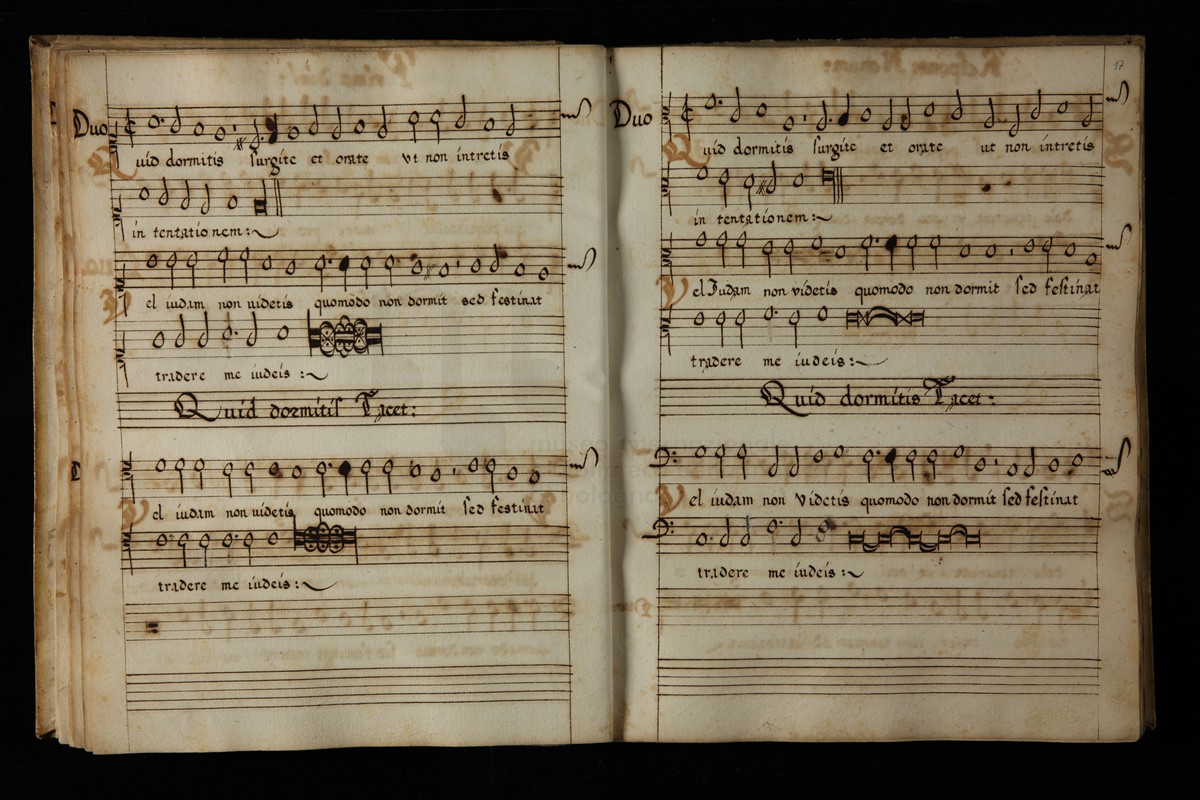 Duo
Quid dormitis surgite et orate vt non intretis
in tentationem:
Vel iudam non uidetis quomodo non dormit sed festinat
tradere me iudeis:
Quid dormitis Tacet:
Vel iudam non uidetis quomodo non dormit sed festinat
tradere me iudeis:
17
Duo
Quid dormitis surgite et orate ut non intretis
in tentationem:
Vel Iudam non videtis quomodo non dormit sed festinat
tradere me iudeis:
Quid dormitis Tacet:
Vel iudam non Videtis quomodo non dormit sed festinat
tradere me iudeis: